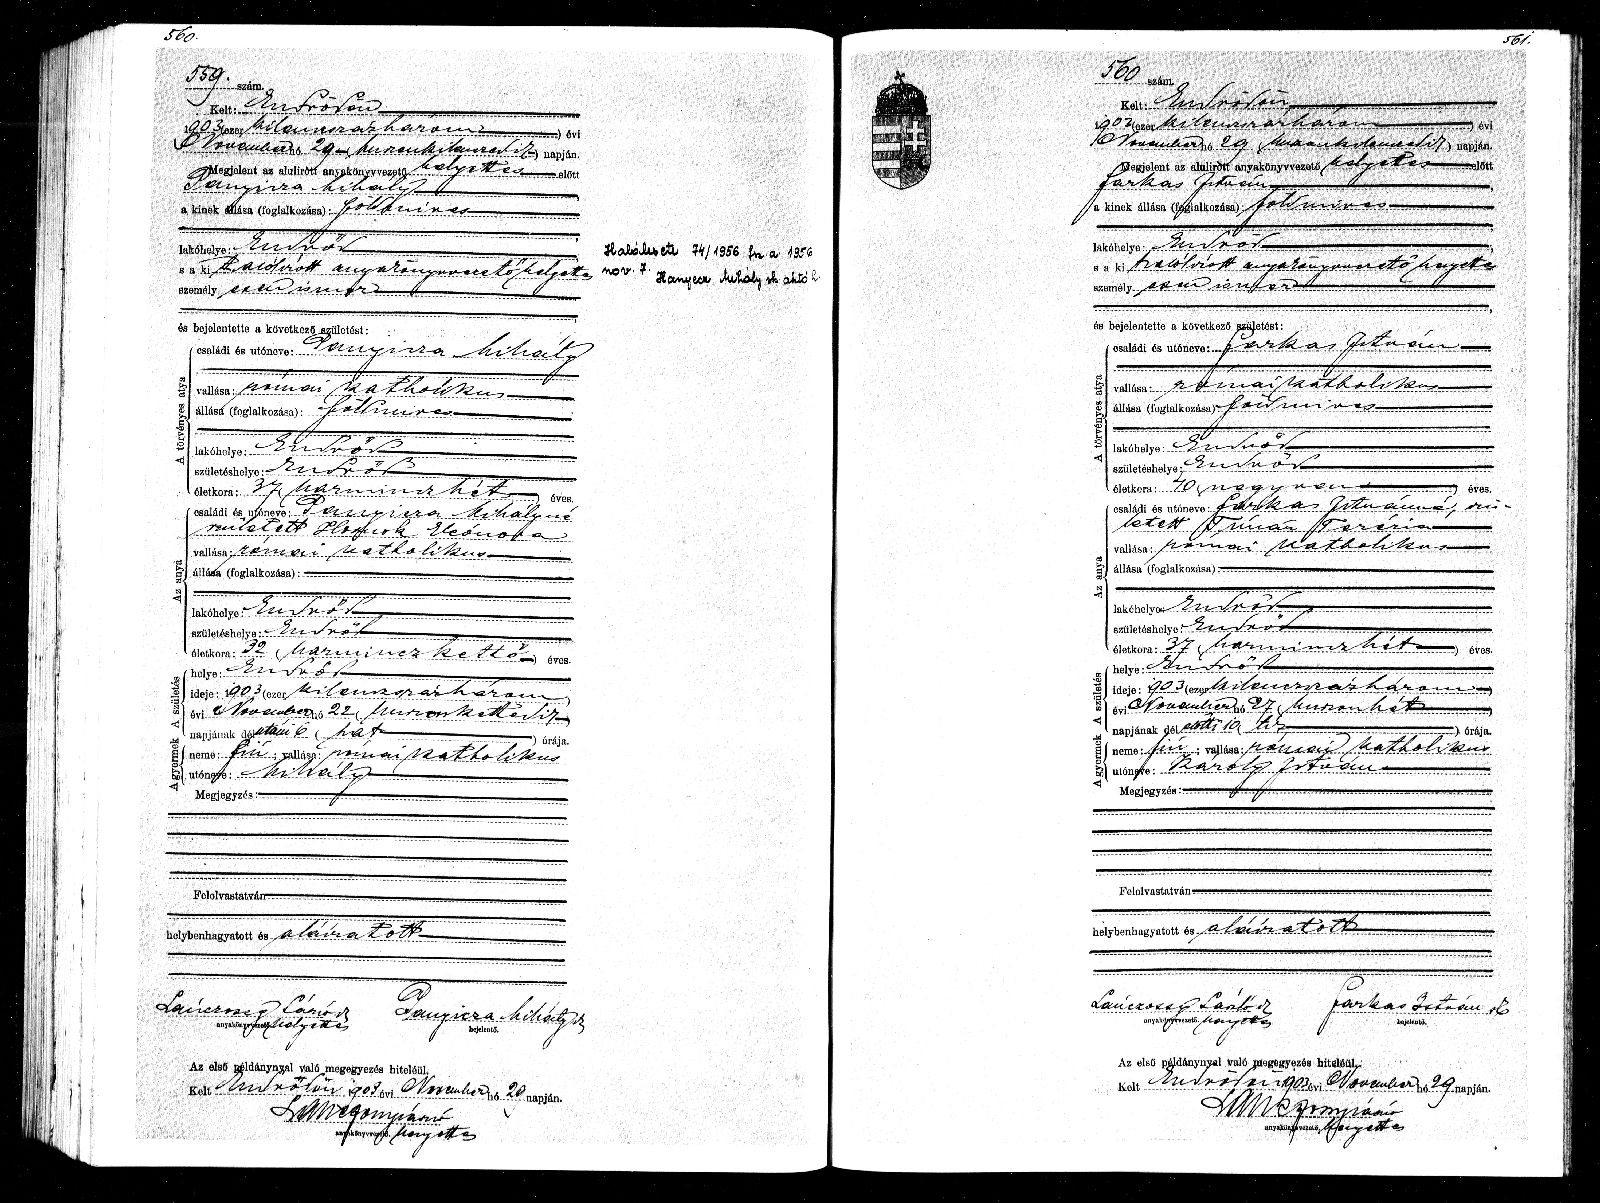 560.
559. szám.
Kelt: Endrődön
1903 (ezer kilenczszázhárom) évi
November hó 29 (huszonkilenczedik) napján.
Megjelent az alulirott anyakönyvvezető helyettes előtt
Mihály
a kinek állása (foglalkozása): földmives
lakóhelye: Endrőd
s a ki alólirott anyakönyvvezető helyettes
személy
és bejelentette a következő születést:
A törvényes atya
családi és utóneve: Mihály
vallása: római katholikus
állása (foglalkozása): földmives
lakóhelye: Endrőd
születéshelye: Endrőd
életkora: 37 (harminczhét) éves.
Az anya
családi és utóneve: Mihályné
született
vallása: római katholikus
állása (foglalkozása):
lakóhelye: Endrőd
születéshelye: Endrőd
életkora: 32 (harminczkettő) éves.
A születés
helye: Endrőd
ideje: 1903 (ezer kilenczszázhárom)
évi November hó 22 (huszonkettedik)
napjának dél utáni 6 (hat) órája.
A gyermek
neme: fiú; vallása: római katholikus
utóneve: Mihály
Megjegyzés:
Felolvastatván
helybenhagyatott és aláiratott
anyakönyvvezető helyettes
Mihály
bejelentő.
Az első példánynyal való megegyezés hiteléül.
Kelt Endrődön 1903 évi November hó 29 napján.
anyakönyvvezető helyettes
74/1956 fsz a 1956
nov. 7.
Mihály
561.
560 szám.
Kelt: Endrődön
1903 (ezer kilenczszázhárom) évi
November hó 29 (huszonkilenczedik) napján.
Megjelent az alulirott anyakönyvvezető helyettes előtt
Farkas István
a kinek állása (foglalkozása): földmives
lakóhelye: Endrőd
s a ki alólirott anyakönyvvezető helyettes
személy
és bejelentette a következő születést:
A törvényes atya
családi és utóneve: Farkas István
vallása: római katholikus
állása (foglalkozása): földmives
lakóhelye: Endrőd
születéshelye: Endrőd
életkora: 40 (negyven) éves.
Az anya
családi és utóneve: Farkas Istvánné, szü-
letett Terézia
vallása: római katholikus
állása (foglalkozása):
lakóhelye: Endrőd
születéshelye: Endrőd
életkora: 37 (harminczhét) éves.
A születés
helye: Endrőd
ideje: 1903 (ezer kilenczszázhárom)
évi November hó 27 (huszonhét)
napjának dél előtti 10 (tiz) órája.
A gyermek
neme: fiú; vallása: római katholikus
utóneve: Károly István
Megjegyzés:
Felolvastatván
helybenhagyatott és aláiratott
anyakönyvvezető helyettes
Farkas István
bejelentő.
Az első példánynyal való megegyezés hiteléül.
Kelt Endrődön 1903 évi November hó 29 napján.
anyakönyvvezető helyettes